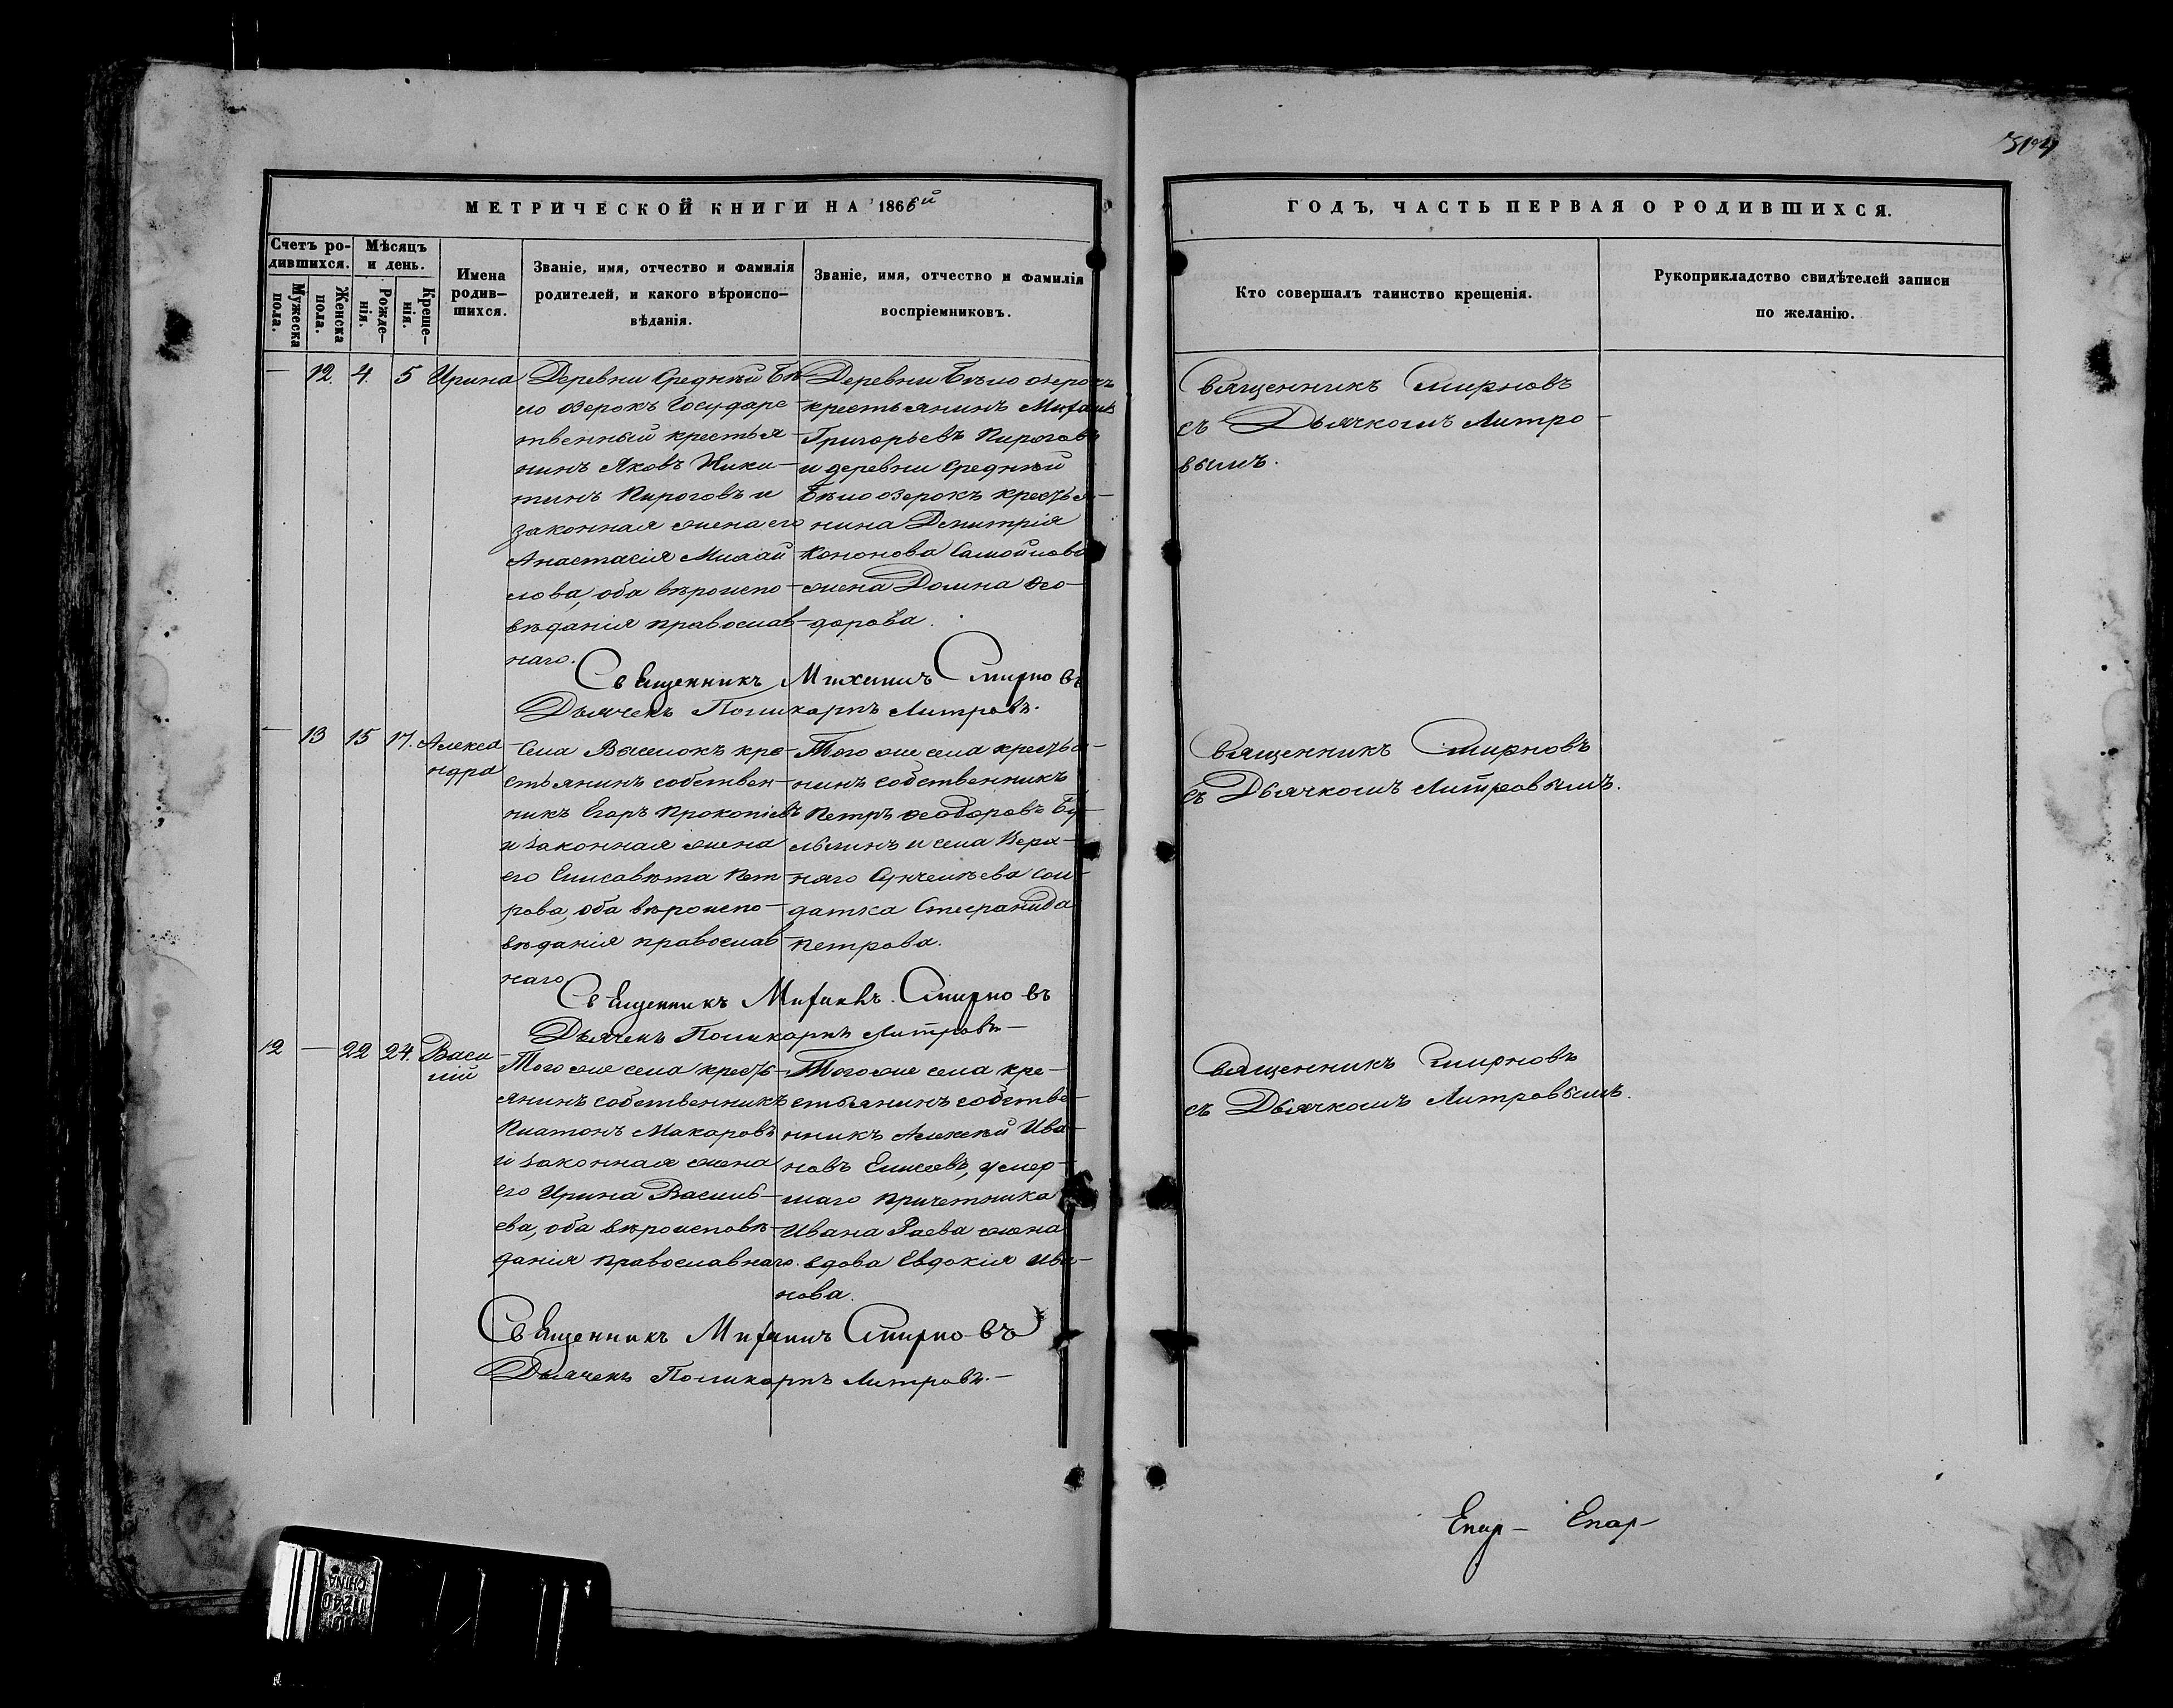 504
МЕТРИЧЕСКОЙ КНИГИ НА 1866й
ГОДЪ, ЧАСТЬ ПЕРВАЯ О РОДИВШИХСЯ.
Счетъ ро-
дившихся.
Мужеска
пола.
Женска
пола.
Мѣсяцъ
и день.
Рожде-
нія.
Креще-
нія.
Имена
родив-
шихся.
Званіе, имя, отчество и фамилія
родителей, и какого вѣроиспо-
вѣданія.
Званіе, имя, отчество и фамилія
воспріемниковъ.
Кто совершалъ таинство крещенія.
Рукоприкладство свидѣтелей записи
по желанію.
— 12. 4. 5 Ирина
Деревни Средней Бѣ-
ло озерокъ Государс-
твенный крестья-
нинъ Яковъ Ники-
тинъ Пироговъ и
законная жена его
Анастасія Михай-
лова, оба вѣроиспо-
вѣданія православ-
наго.
Деревни Бѣло озерокъ
крестьянинъ Михаилъ
Григорьевъ Пироговъ
и деревни Средней
Бѣло озерокъ крестья-
нина Дмитрія
Кононова Самойлова
жена Домна Ѳео-
дорова.
Священникъ Смирновъ
съ Дьячкомъ Митро-
вымъ.
Священникъ Михаилъ Смирновъ
Дьячекъ Поликарпъ Митровъ.
— 13 15 17. Алекса
ндра
Села Выселокъ кре-
стьянинъ собствен-
никъ Егоръ Прокопіевъ
и законная жена
его Елисавета Пет-
рова, оба вѣроиспо-
вѣданія православ-
наго
Того же села крестья-
нинъ собственникъ
Петръ Ѳеодоровъ
и села Верх-
няго сол-
датка Стефанида
Петрова.
Священникъ Смирновъ
съ Дьячкомъ Митровымъ.
Священникъ Михаилъ Смирновъ
Дьячекъ Поликарпъ Митровъ—
12 — 22 24. Васи
лій
Того же села кресть-
янинъ собственникъ
Платонъ Макаровъ
и законная жена
его Ирина Василь-
ева, оба вѣроисповѣ-
данія православнаго.
Того же села кре-
стьянинъ собстве-
нникъ Алексѣй Ива-
новъ Елисеевъ, умер-
шаго причетника
Ивана Раева жена
вдова Евдокія Ива-
нова.
Священникъ Смирновъ
съ Дьячкомъ Митровымъ.
Священникъ Михаилъ Смирновъ
Дьячекъ Поликарпъ Митровъ.—
Епар- Епар-
CHINA